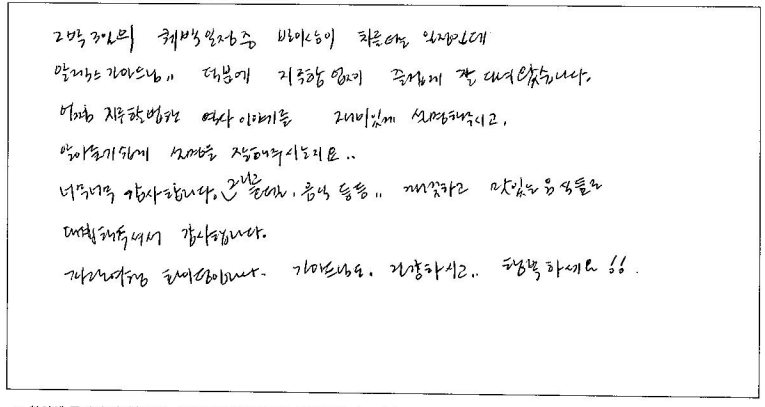 2박3일의 퀘백일정중 비아농이 차를타는 일정인데
알렉스 가이드님,, 덕분에 지루함 없이 즐겁게 잘 다녀 왔습니다.
어쩜 지루할법한 역사 이야기를 재미있게 설명해주시고,
알아듣기쉽게 설명을 잘해주시는지요..
너무너무 감사합니다. 그리고 호텔, 음식 등등,, 깨끗하고 맛있는 음식들로
대접해주셔서 감사합니다.
파란여행 화이팅입니다. 가이드님도. 건강하시고.. 행복하세요!!.